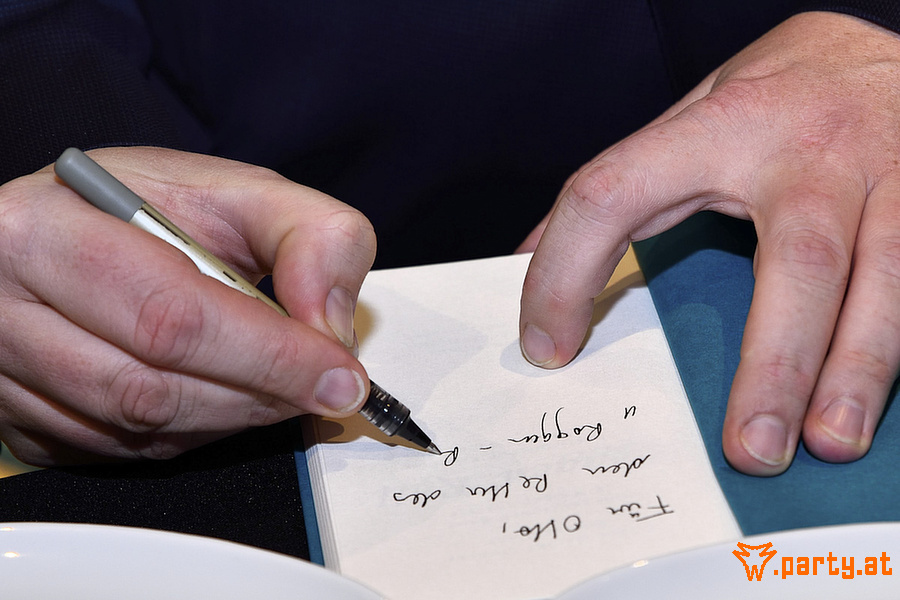 Für Otto,
den Retter des
„Roggen - R
w.party.at